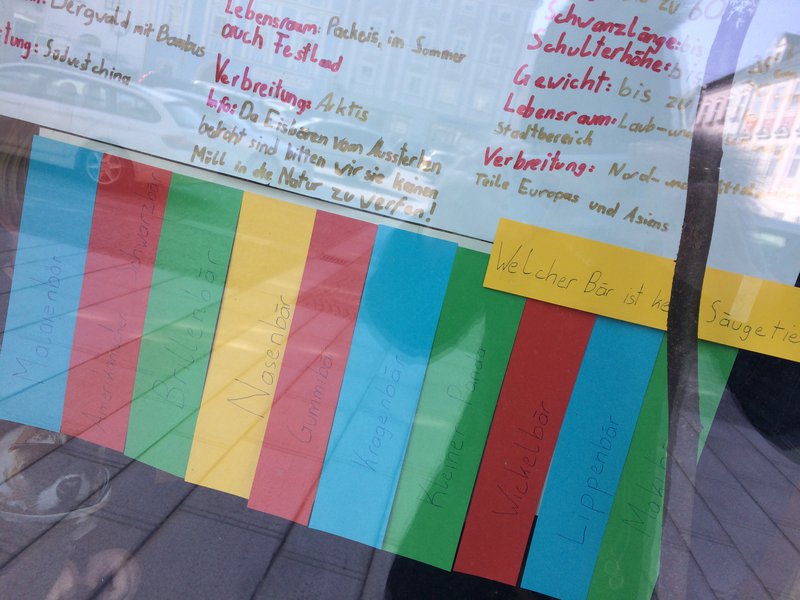 Bergwald mit Bambus
Südwestchina
Lebensraum: Packeis, im Sommer
auch Festland
Verbreitung: Arktis
Info: Da Eisbären vom Aussterben
bedroht sind bitten wir sie keinen
Müll in die Natur zu werfen!
zu 60
Schwanzlänge: bis
Schulterhöhe:
Gewicht: bis zu
Lebensraum: Laub-
Stadtbereich
Verbreitung: Nord-
Teile Europas und Asiens
Welcher Bär ist Säugetie
Malaienbär
Schwarzbär
Brillenbär
Nasenbär
Gummibär
Kragenbär
Kleiner Panda
Wickelbär
Lippenbär